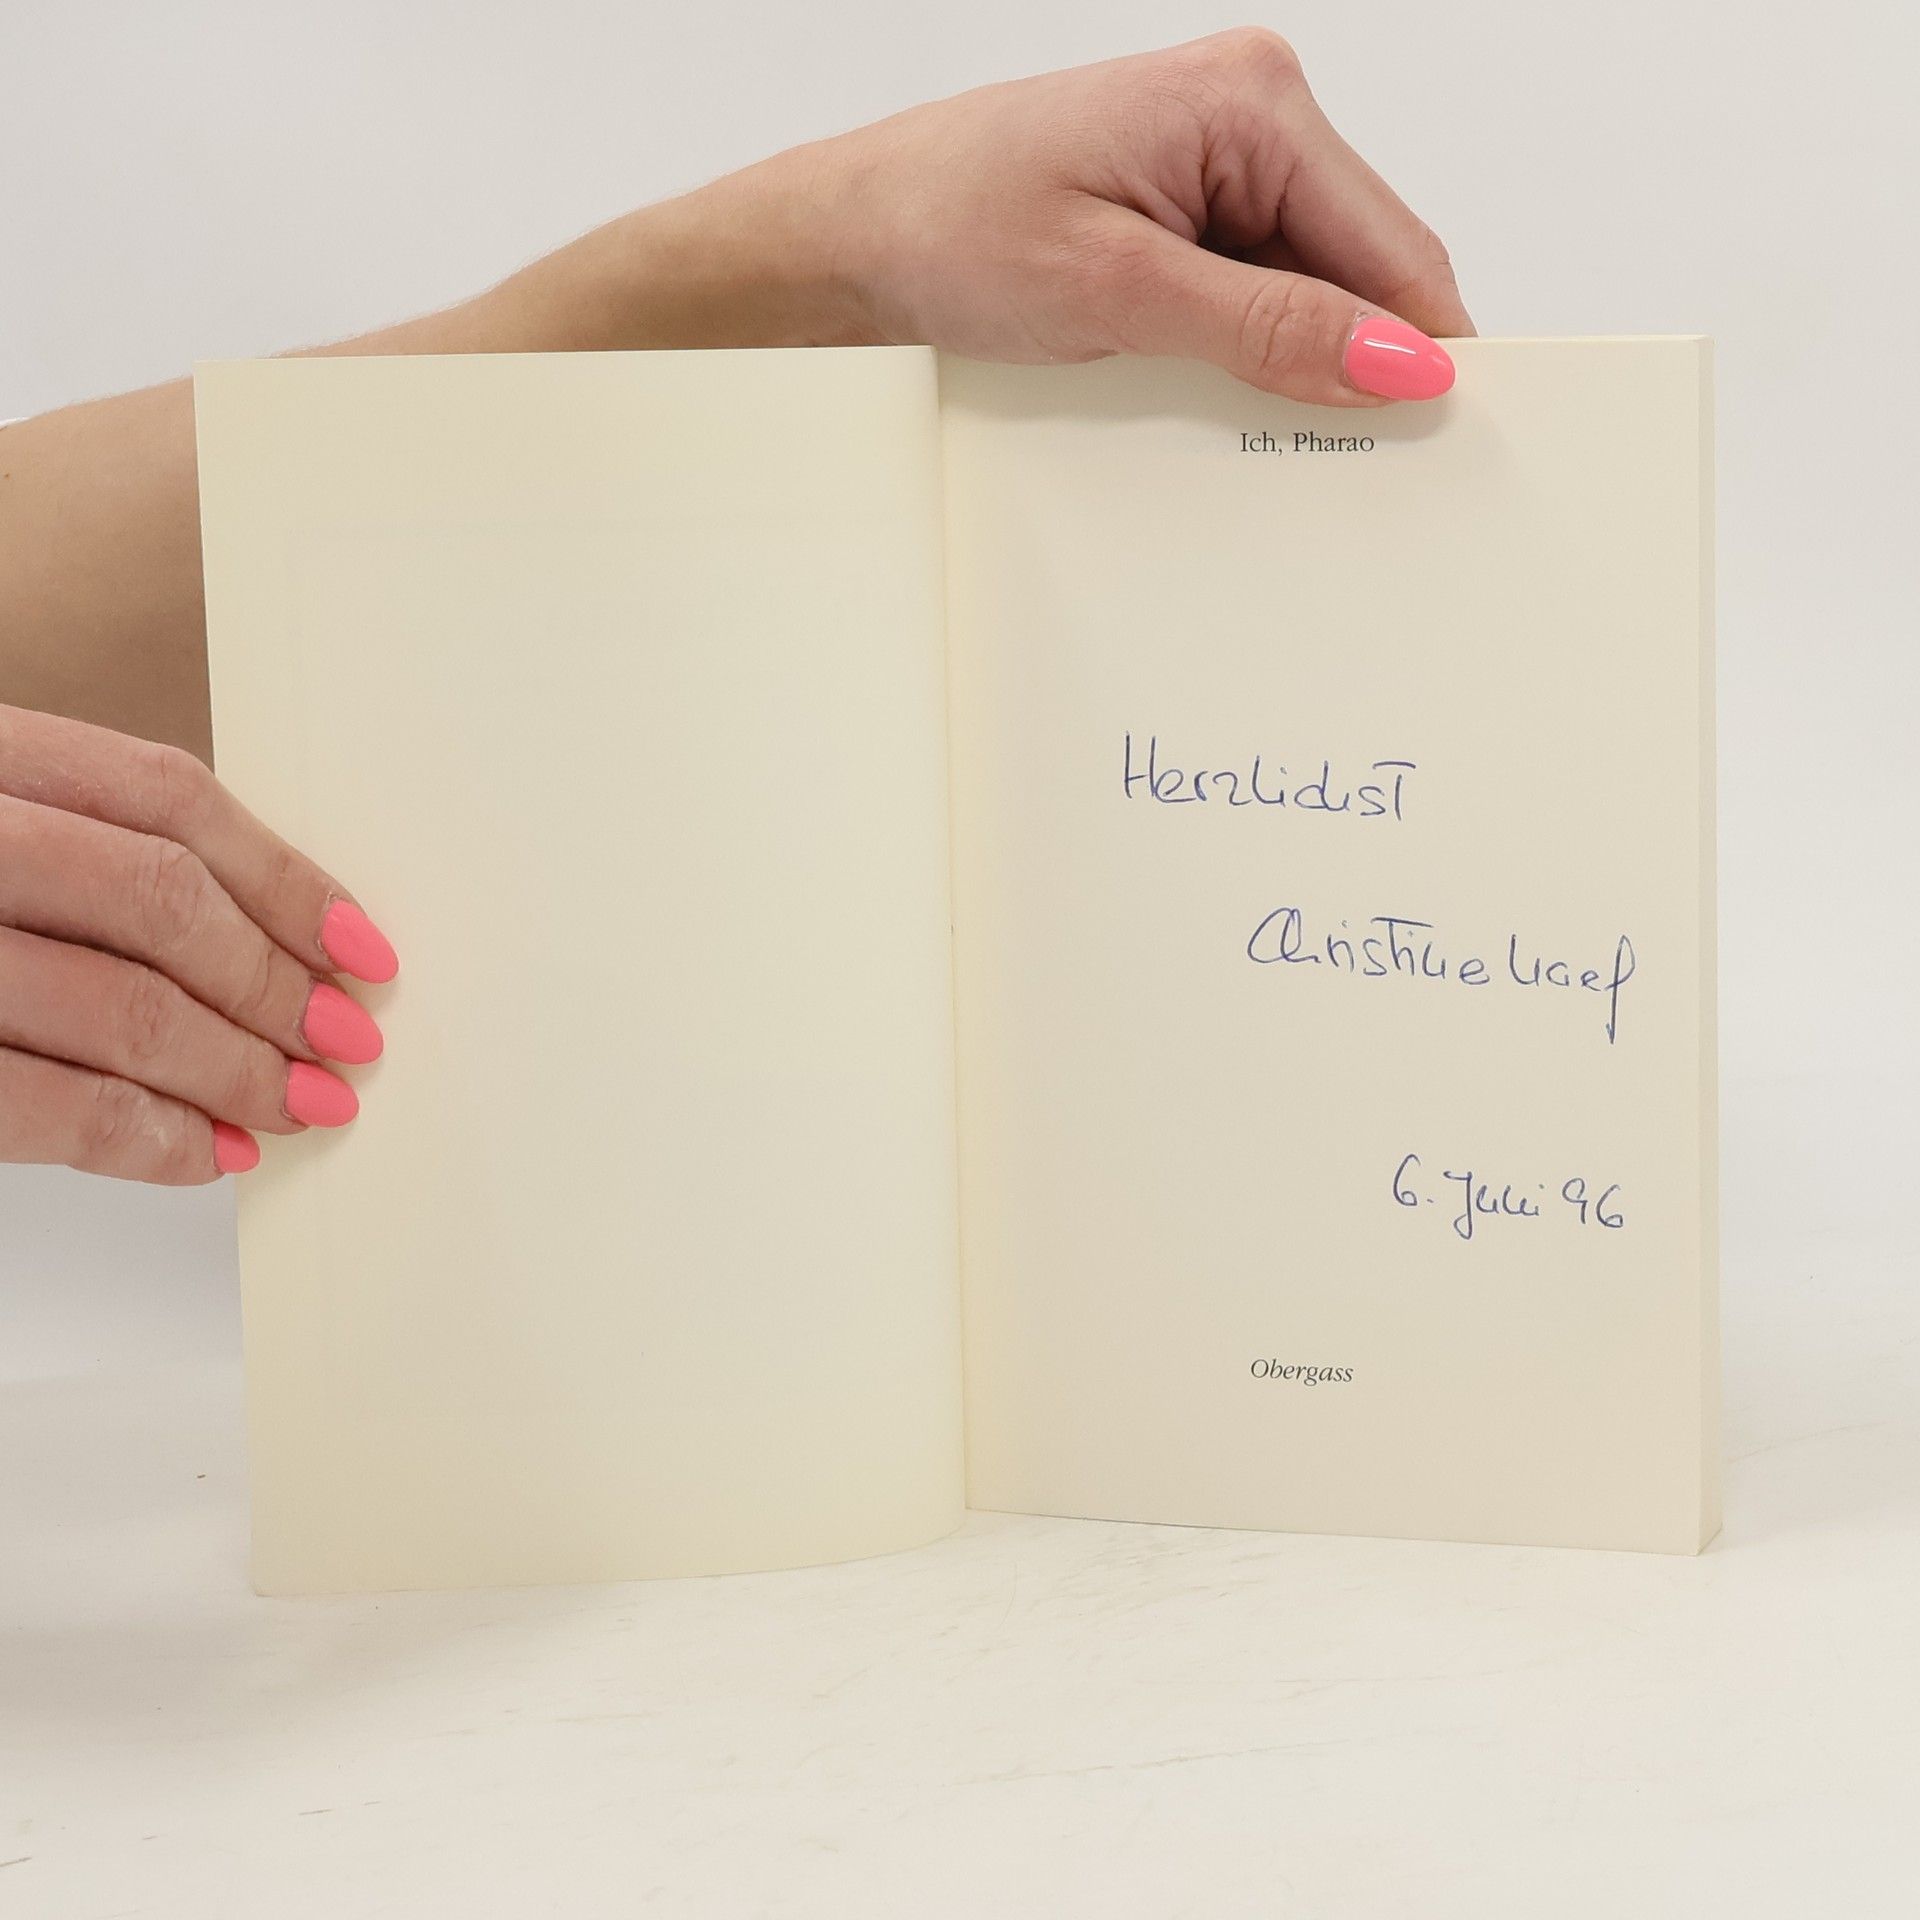 Ich, Pharao
Herzlichst
Christine
6. Juni 96
Obergass